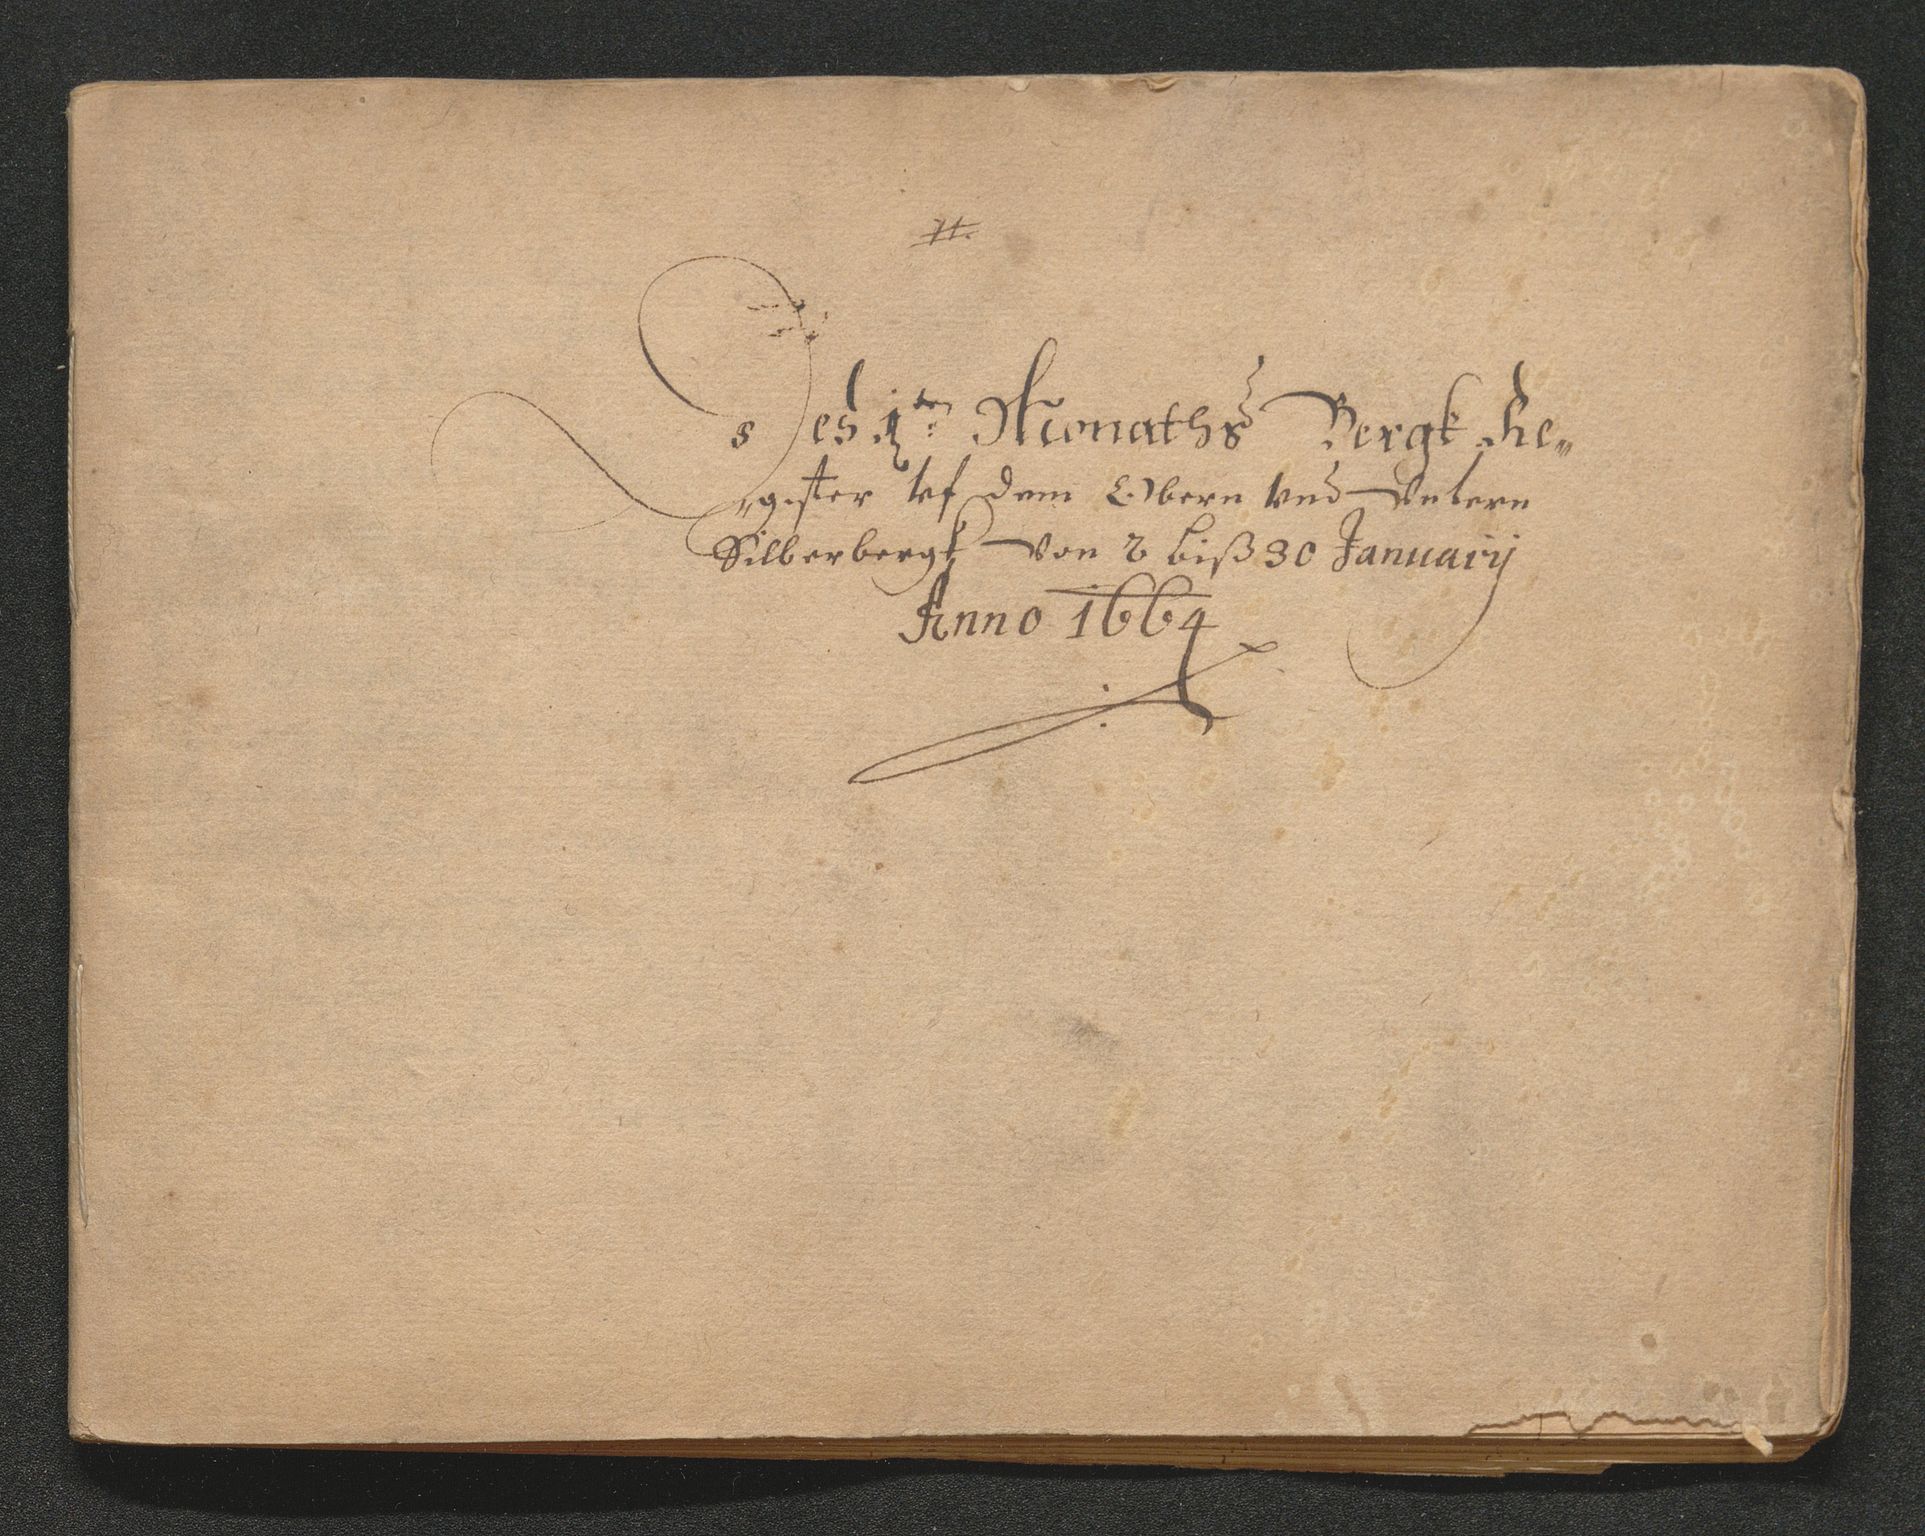 #.
Des 1ten Monaths Bergk Re„
„gister vf dem Obern vnd Vntern
Silberbergk von 2 biß 30 January
Anno 1664